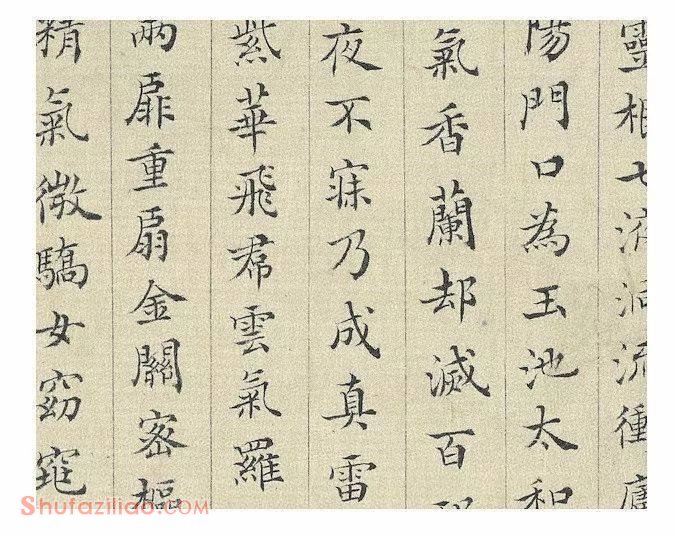 靈根七液洞流衝廬
陽門口為玉池太和
氣香蘭却滅百邪
夜不寐乃成真雷
紫華飛帬雲氣羅
兩扉重扇金關密樞
精氣微驕女窈窕
Shufaziliao.com